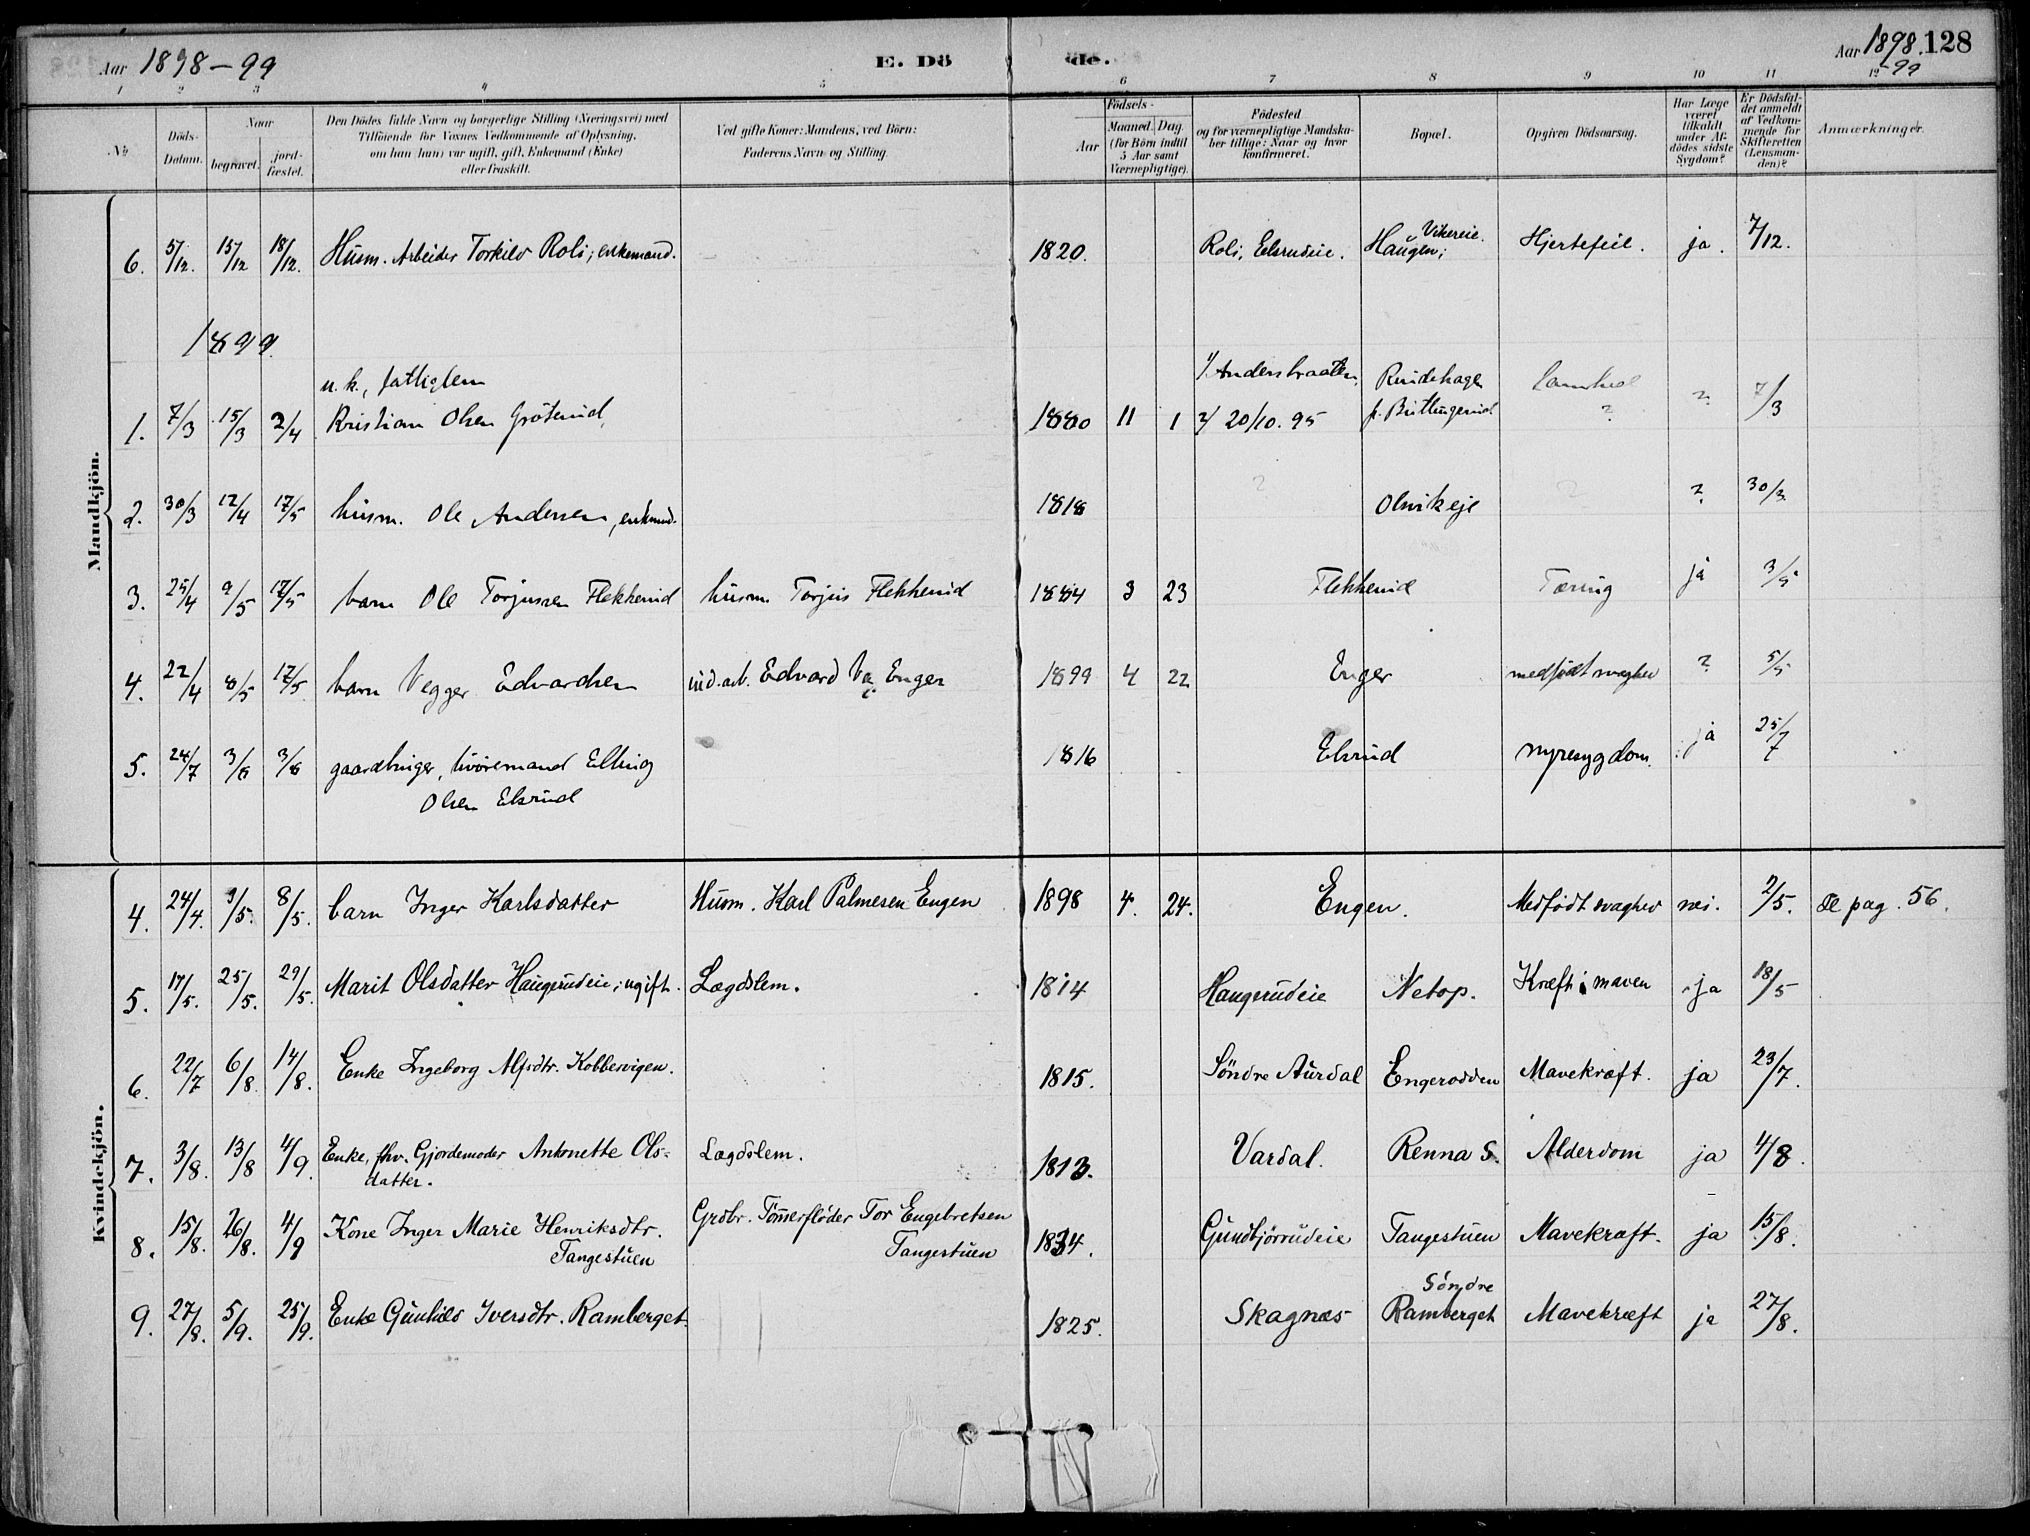 Aar 1898-99
E. Dö
de.
Aar 1898. 128
-99
1 2 3 4 5 6 7 8 9 10 11 12
No.
Döds-Datum.
Naar
begravet.
jord-fæstet.
Den Dödes fulde Navn og borgerlige Stilling (Næringsvei) med
Tilföiende for Voxnes Vedkommende af Oplysning,
om han (hun) var ugift, gift, Enkemand (Enke)
eller fraskilt.
Ved gifte Koner: Mandens, ved Börn:
Faderens Navn og Stilling.
Födsels-
Aar
Maaned. Dag
(for Börn indtil
5 Aar samt
Værnepligtige).
Födested
og for værnepligtige Mandska-
ber tillige: Naar og hvor
konfirmeret.
Bopæl.
Opgiven Dödsaarsag.
Har Læge
været
tilkaldt
under Af-
dödes sidste
Sygdom?
Er Dödsfal-
det anmeldt
af Vedkom-
mende for
Skifteretten
(Lensman-
den)?
Anmærkninger.
Mandkjön.
6. 5/12. 15/12 18/12. Husm. Arbeider Torkild Roli; enkemand. 1820. Roli, Elsrudeie. Haugen; Vikereie. Hjertefeil. ja. 7/12.
1899
u. k., fattiglem 1/ Andersbraaten,
1. 7/3 15/3 2/4 Kristian Olsen Gröterud, 1880 11 1 2/ 20/10. 95 ? 7/3
2. 30/3 12/4 17/5 husm. Ole Andersen, enkemd. 1818 ? Olsvikeje ? ? 30/3.
3. 25/4 9/5 17/5 barn Ole Torjussen Flekkerud husm. Torjus Flekkerud 1884 3 23 Flekkerud Tæring ja 3/5
4. 22/4 8/5 17/5 barn Vegger Edvardsen ind.arb. Edvard Enger 1899 4 22 Enger medfödt svaghed ? 5/5
5. 24/7 3/8 3/8 gaardbruger, livöremand Elling 1816 Elsrud nyresygdom. ja 25/7
Olsen Elsrud
Kvindekjön.
4. 24/4. 3/5. 8/5. barn Inger Karlsdatter Husm. Karl Palmesen Engen 1898 4. 24. Engen. Medfödt svaghed nei. 2/5. Se pag. 56.
5. 17/5. 25/5. 29/5. Marit Olsdatter Haugerudeie; ugift. Lægdslem. 1814 Haugerudeie Netop. Kræft i maven ja 18/5
6. 22/7 6/8. 14/8. Enke Ingeborg Alfsdtr. Kobbervigen. 1815. Söndre Aurdal Engerodden Mavekræft. ja 23/7.
7. 3/8. 13/8 4/9. Enke, fhv. Gjordemoder Antonette Ols- Lægdslem. 1813. Vardal. Renna S. Alderdom ja 4/8.
datter.
8. 15/8. 26/8. 4/9 Kone Inger Marie Henriksdtr. Grdbr. Tömmerflöder Tor Engebretsen 1834. Gundbjörrudeie Tangestuen Mavekræft. ja 15/8.
Tangestuen Tangestuen
9. 27/8. 5/9. 25/9. Enke Gunhild Iversdtr. Ramberget. 1825. Skagnæs Söndre Ramberget Mavekræft ja 27/8.